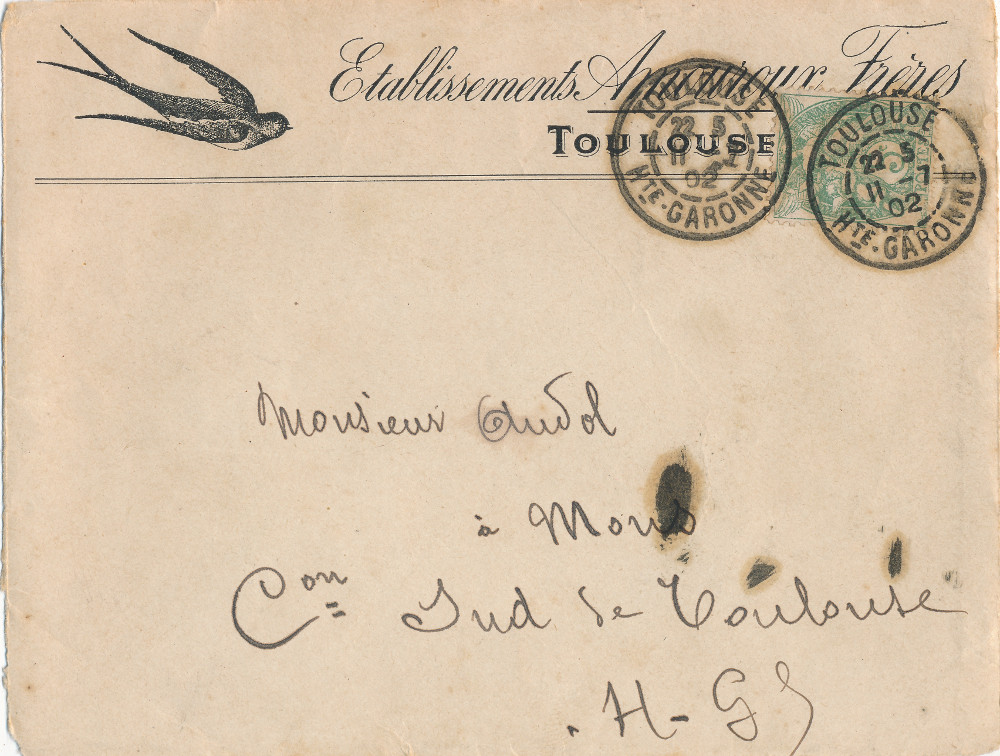 Etablissements Amouroux Frères
TOULOUSE
TOULOUSE
22 5
11 -7
02
HTE-GARONNE
TOULOUSE
22 5
11 -7
02
HTE-GARONNE
Monsieur Audol
à Mons
Con Sud de Toulouse
H-G